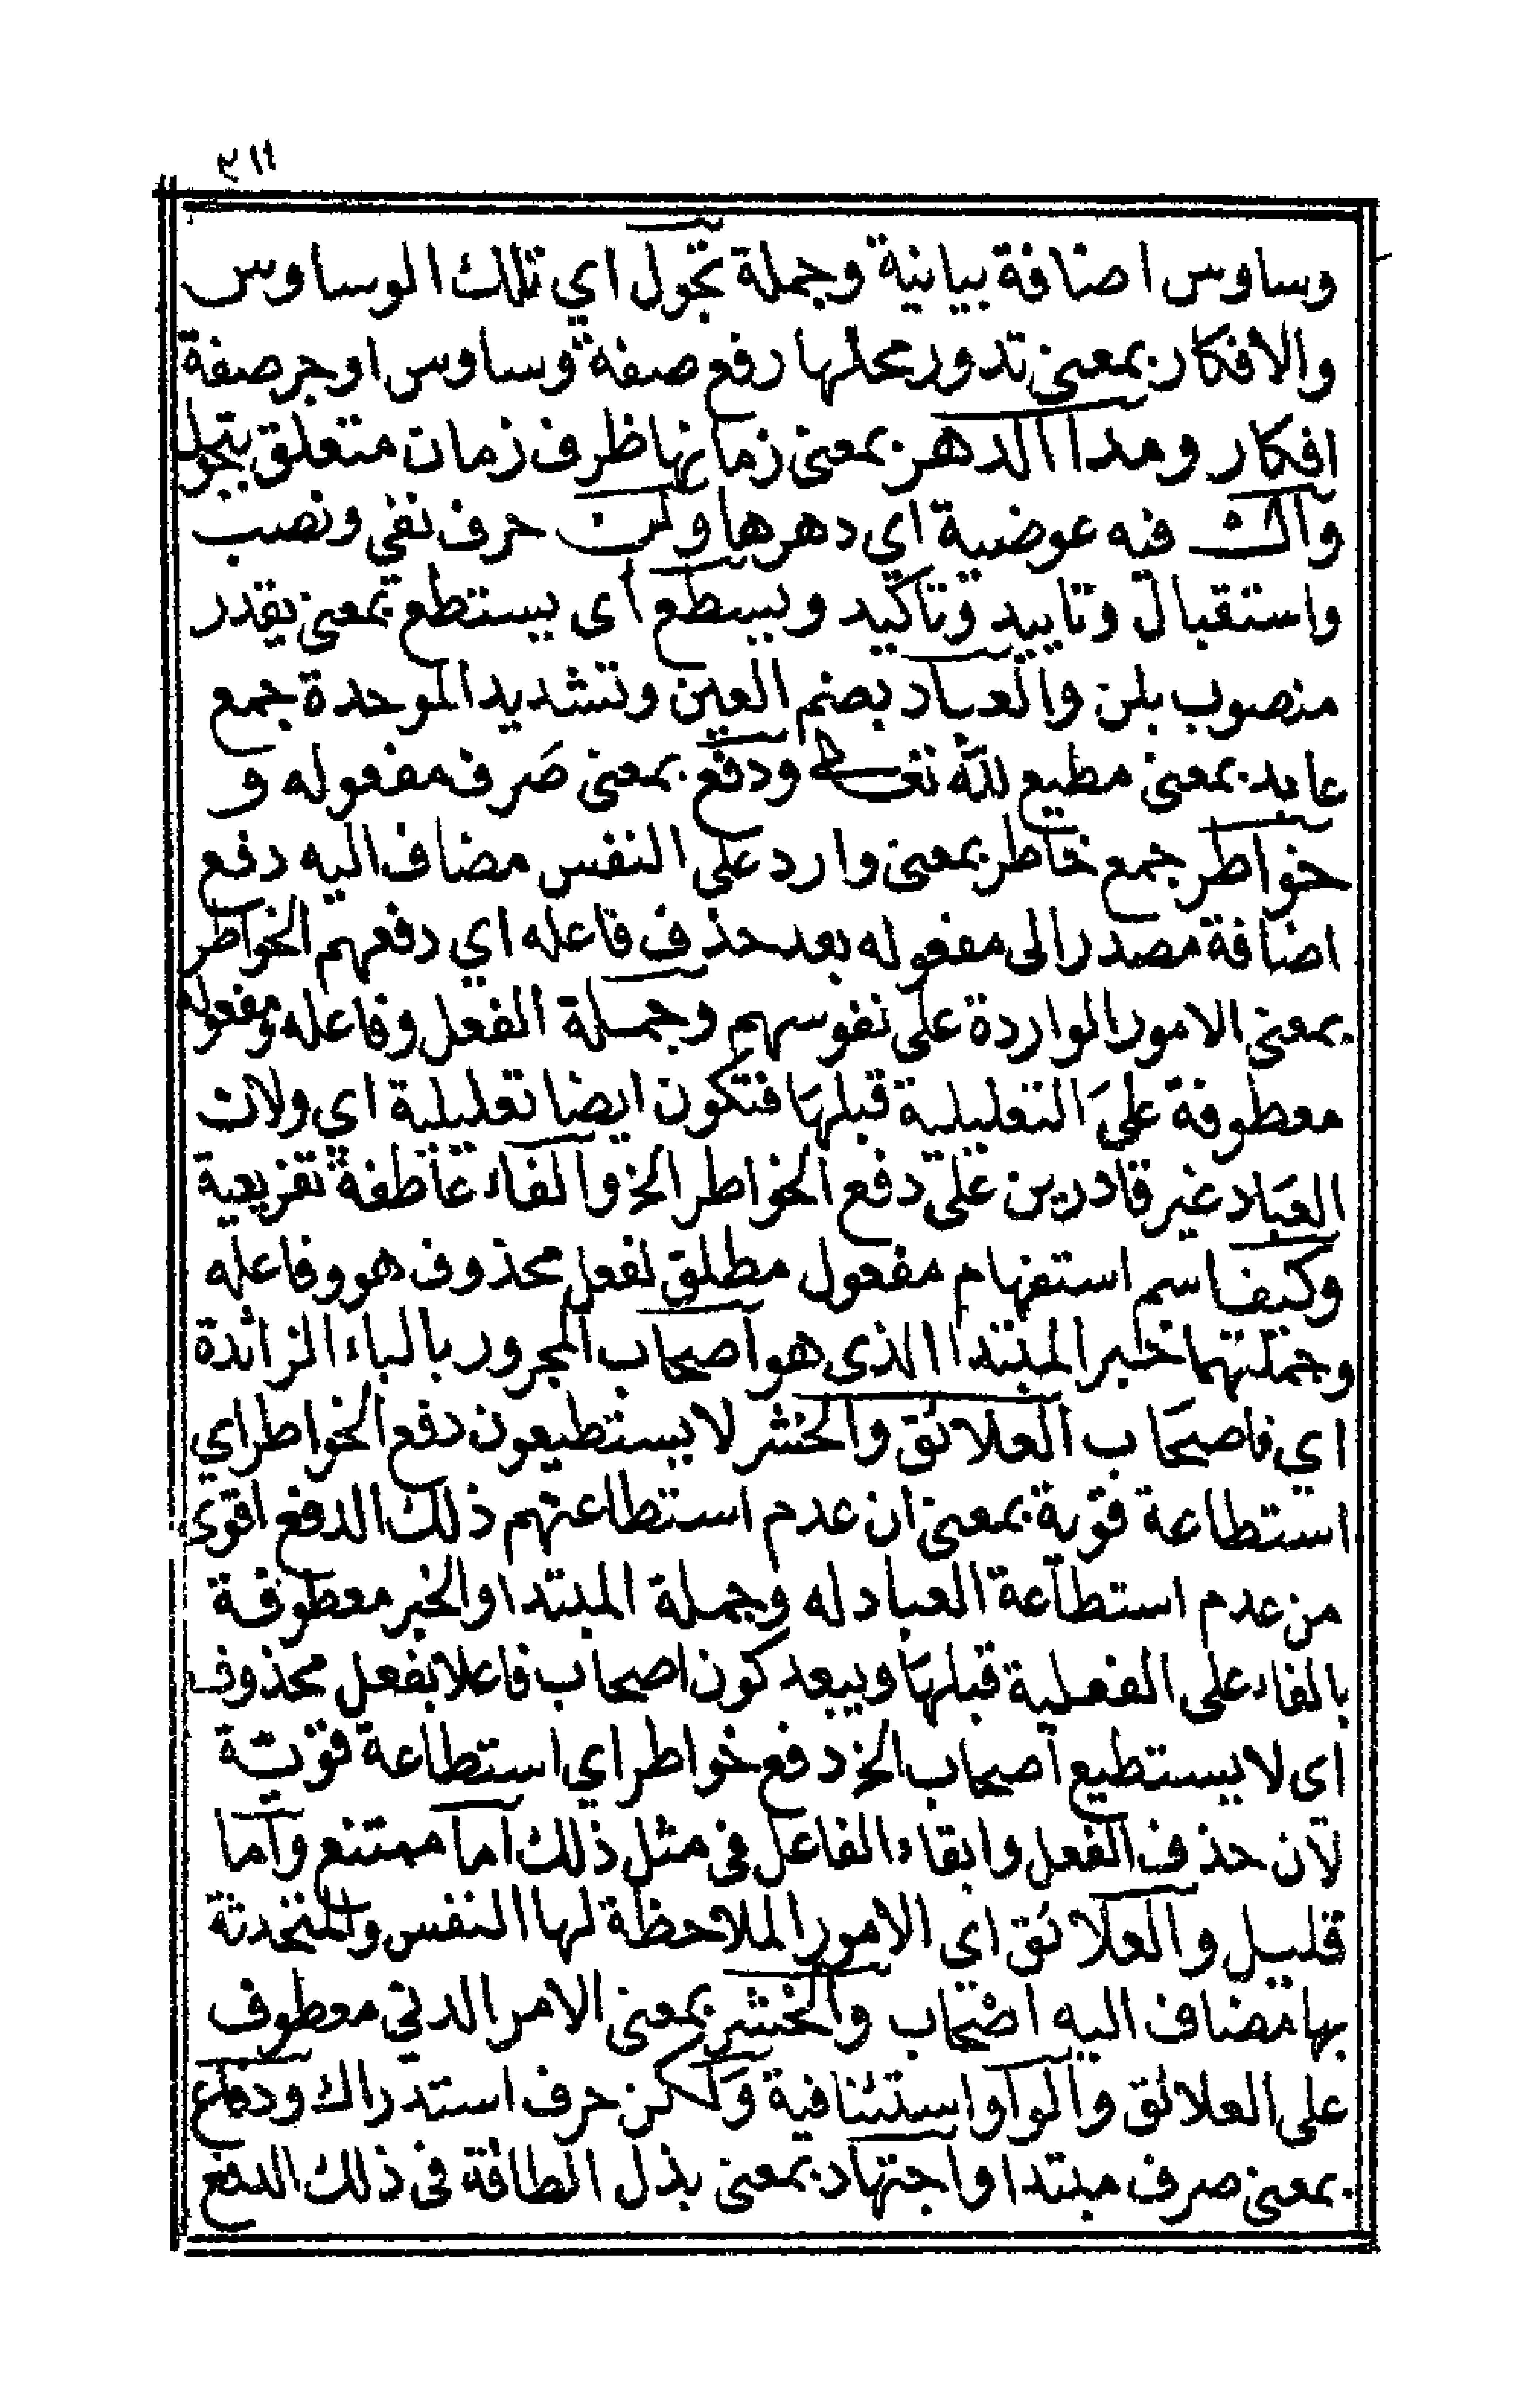 ٩١١
وساوس اضافة بيانية وجملة تجول اي تلك الوساوس
والافكار بمعنى تدور محلها رفع صفة وساوس او جر صفة
افكار ومدا الدهر بمعنى زمانها ظرف زمان متعلق بتجول
وال فيه عوضية اي دهرها ولن حرف نفي ونصب
واستقبال وتاييد وتاكيد ويسطع اي يستطع بمعنى يقدر
منصوب بلن والعباد بضم العين وتشديد الموحدة جمع
عابد بمعنى مطيع لله تعالى ودفع بمعنى صَرف مفعوله و
خواطر جمع خاطر بمعنى وارد على النفس مضاف اليه دفع
اضافة مصدر الى مفعوله بعد حذف فاعله اي دفعهم الخواطر
بمعنى الامور الواردة على نفوسهم وجملة الفعل وفاعله ومفعوله
معطوفة علىَ التعليلية قبلهَا فتكون ايضا تعليلية اي ولان
العبَاد غير قادرين على دفع الخواطر الخ والفاء عاطفة تفريعية
وكيف اسم استفهام مفعول مطلق لفعل محذوف هو وفاعله
وجملتهما خبر المبتدا الذي هو اصحاب المجرور بالباء الزائدة
اي فاصحَاب العلائق والخشر لا يستطيعون دفع الخواطر اي
استطاعة قوية بمعنى ان عدم استطاعتهم ذلك الدفع اقوى
من عدم استطاعة العباد له وجملة المبتدا والخبر معطوفة
بالفاء على الفعلية قبلهَا ويبعد كون اصحاب فاعلا بفعل محذوف
اي لا يستطيع اصحاب الخ دفع خواطر اي استطاعة قوّية
لان حذف الفعل وابقاء الفاعل في مثل ذلك اما ممتنع واما
قليل والعلائق اي الامور الملاحظة لها النفس والمتحدثة
بها مضاف اليه اصحاب والخشر بمعنى الامر الدني معطوف
على العلائق والواو استئنافية وَلكن حرف استدراك ودفاع
بمعنى صرف مبتدا واجتهاد بمعنى بذل الطاقة في ذلك الدفع